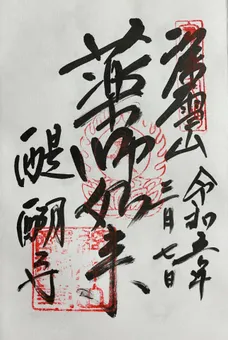 山
令和五年
三月七日
薬師如来
醍醐寺